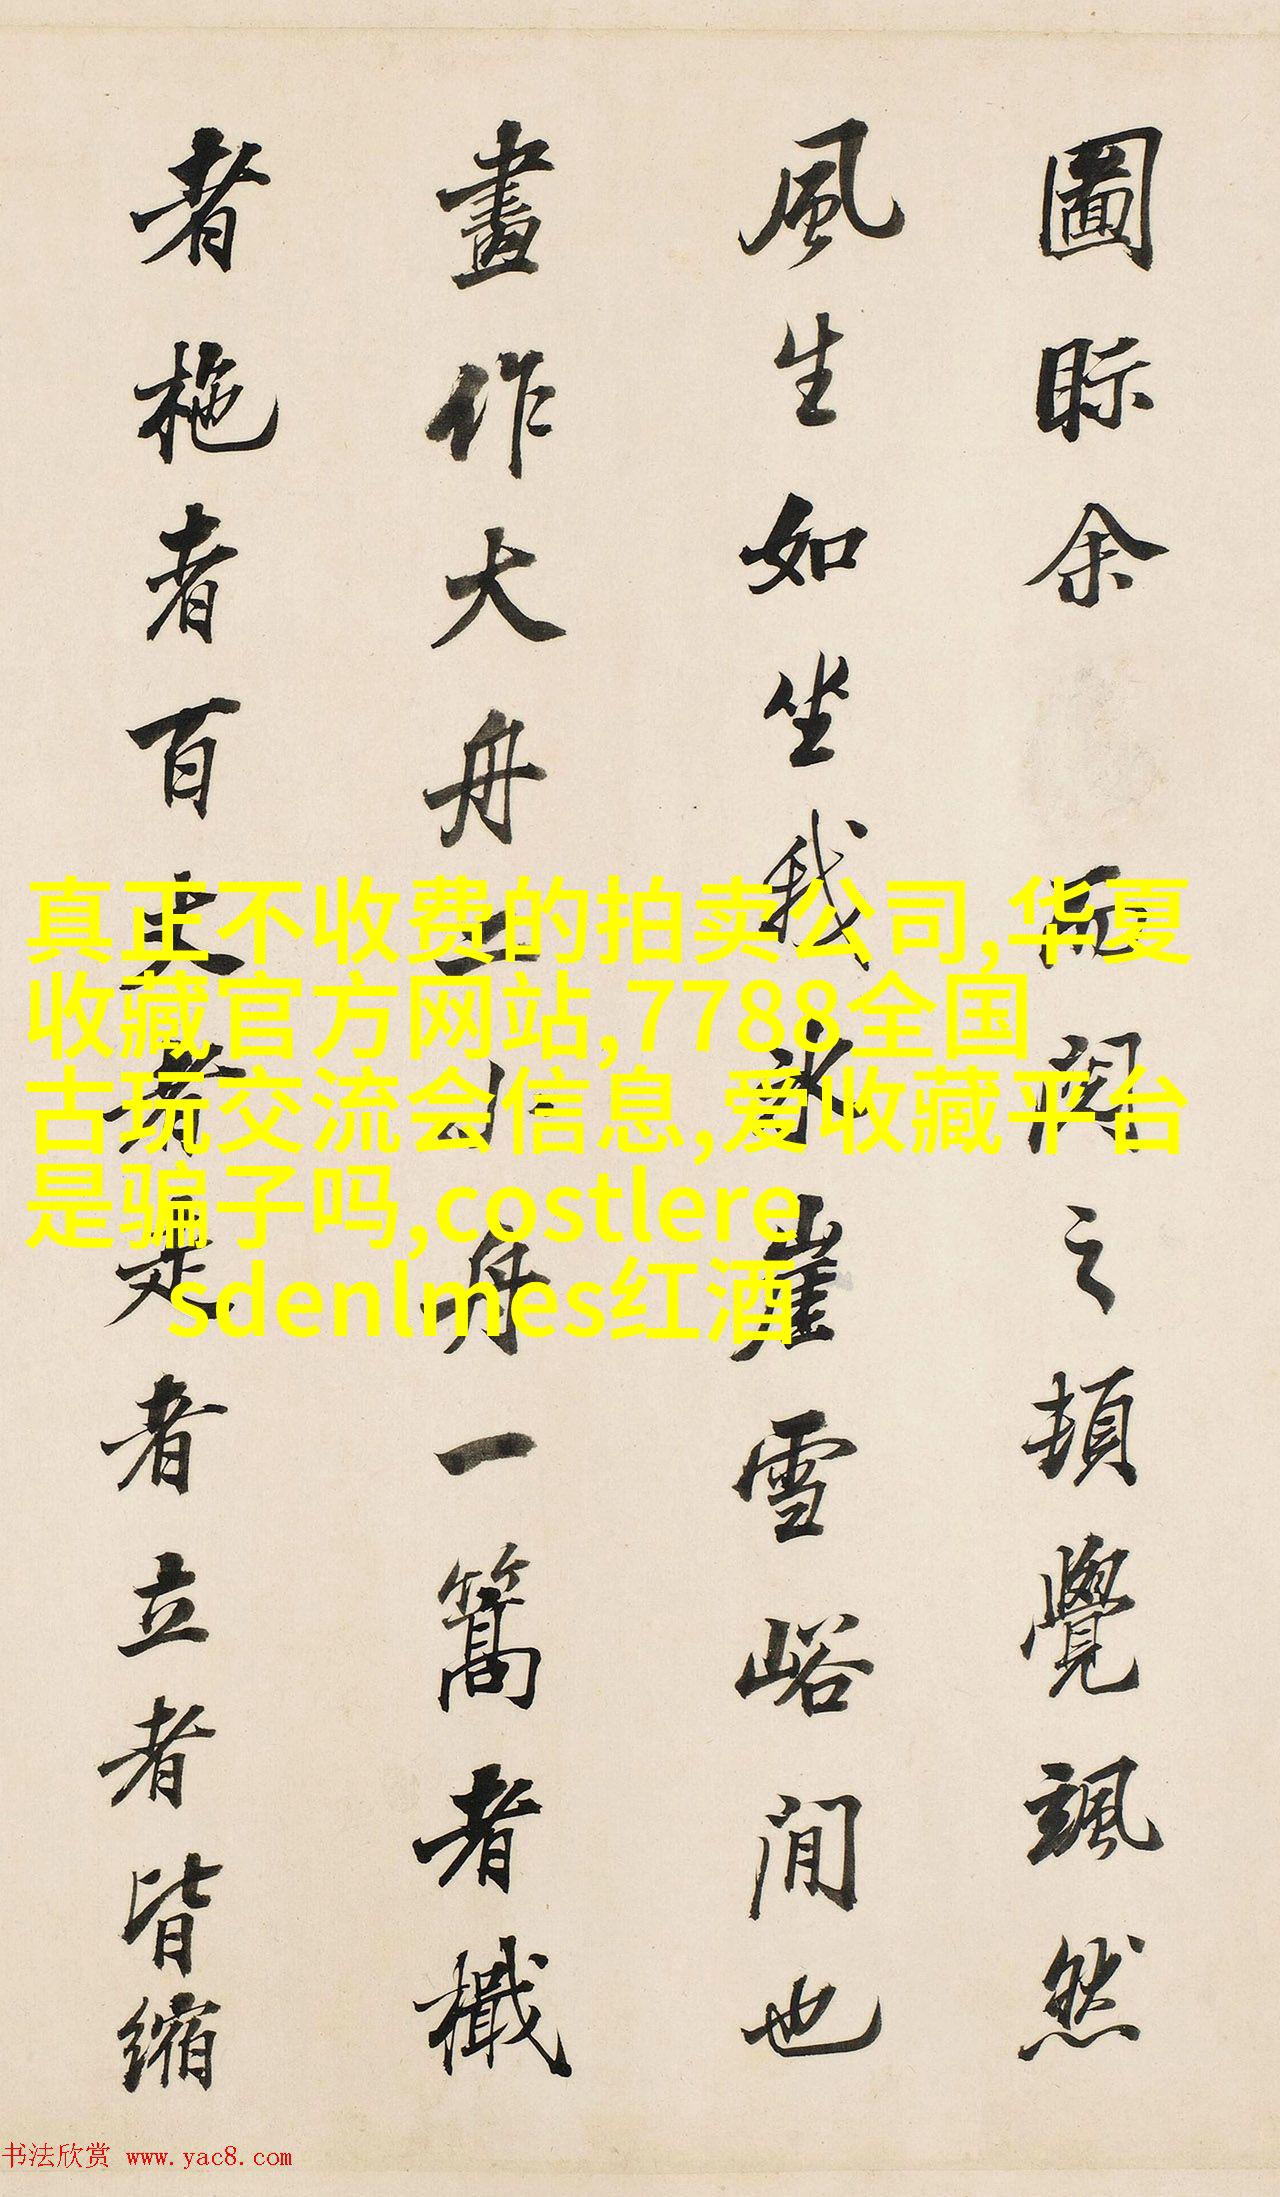 圖眎余而閱之頓覺颯然
風生如坐我冰崖雪峪間也
畫作大舟二小舟一篙者檝
者柂者百丈者走者立者皆縮
真正不收费的拍卖公司,华夏
收藏官方网站,7788全国
古玩交流会信息,爱收藏平台
是骗子吗,costlere
sdenlmes红酒
书法欣赏 www.yac8.com